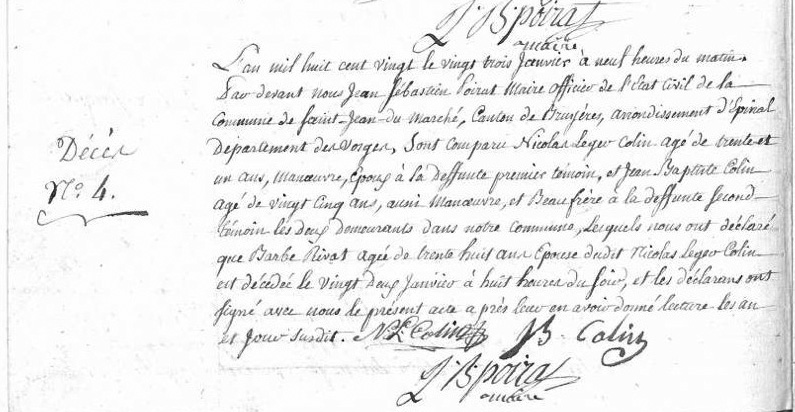 J. B. poirat
maire
L'an mil huit cent vingt le vingt trois Janvier à neuf heures du matin.
Par devant nous Jean Sébastien Poirat Maire officier de l'Etat Civil de la
Commune de Saint-Jean-du Marché, Canton de Bruyéres, arrondissement d'Epinal
Département des Vosges, Sont comparu Nicolas leger Colin agé de trente et
un ans, Manœuvre, Epoux à la deffunte premier témoin, et Jean Baptiste Colin
agé de vingt Cinq ans, aussi Manœuvre, et Beau frère à la deffunte second
témoin les deux demeurants dans notre commune, Lesquels nous ont déclaré
que Barbe Rivat agée de trente huit ans Epouse dudit Nicolas leger Colin
est décédée le vingt deux Janvier à huit heures du soir, et les déclarans ont
signé avec nous le présent acte après leur en avoir donné lecture les an
et Jour susdit. N. L. Colin J B. Colin
Décès
No. 4.
J. B. poirat
maire